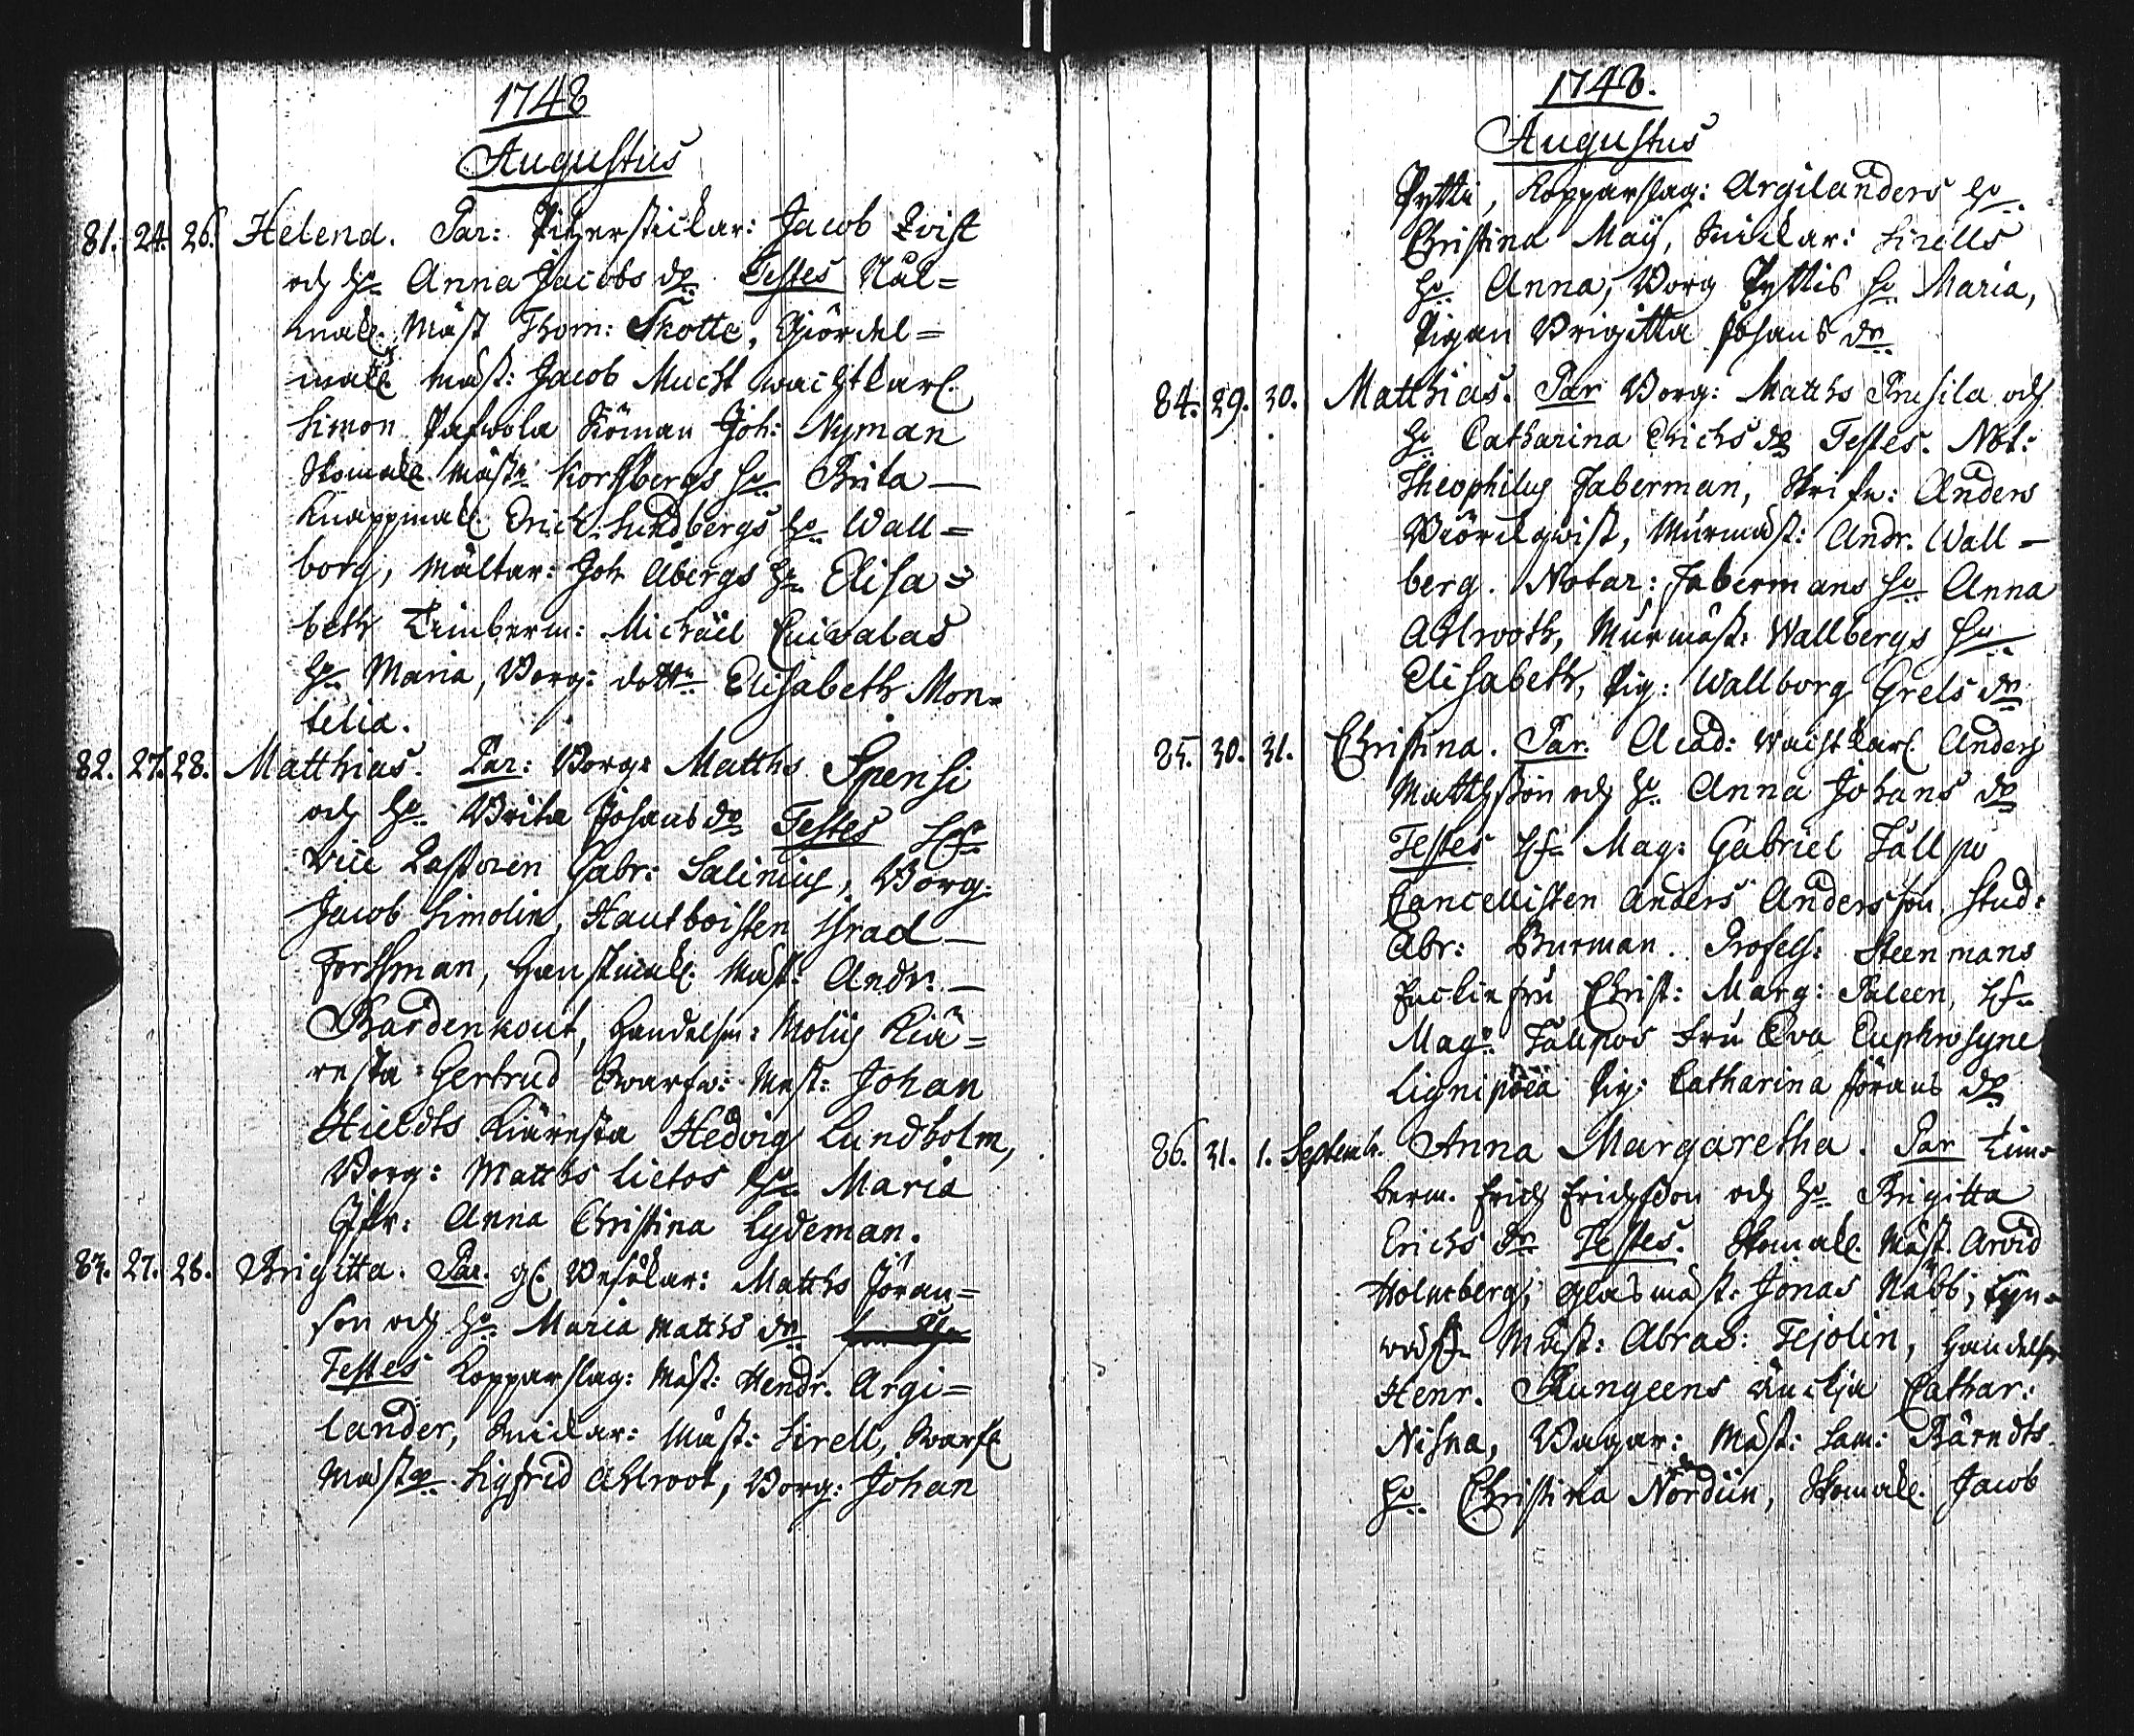 1748
Augustus
81. 24. 26. Helena. Par: Jacob Qvist
och h: Anna Jacobs dr Testes Nål=
mak. Mäst Thom: Skotte, Giördel=
mak. mäst: Jacob Mucht wachtkarl.
Simon Pafwola Siöman Joh: Nyman
Skomak. mäst: Korssbergs hu Brita —
Knappmak. Erich Lundbergs hu Wall=
borg, mältar: Joh Åbergs hu Elisa=
beth Timberm: Michäel
hu Maria, Borg: dottr Elisabeth Mon=
telia.
82. 27. 28. Matthias. Par: Borg: Matths Spensi
och hu Brita Johans dr Testes H:
vice Pastoren Gabr: Salinius, Borg:
Jacob Simolin, Hautboisten Israel —
Forssman, Handskmak. Mäst: Andr: —
Bardenkout, Handelsm: Moliis Kiä=
resta Gertrud Swarfw: Mäst: Johan
Hieldts Kiäresta Hedvig Lundholm,
Borg: Matths Lietos hu Maria
Jfr: Anna Christina Lydeman.
83. 27. 28. Brigitta. Par. gl. Besökar: Matths Jöran=
son och hu Maria Matths dr
Testes Kopparslag: Mäst: Hendr. Argi=
lander, Snickar: Mäst: Sirell, Swarfw
Mäst: Sigfrid Ahlroot, Borg: Johan
1748.
Augustus
Pytti, Kopparslag: Argilanders hu
Christina Maij, Snickar: Sirells
hu Anna, Borg Pyttis hu Maria,
Pigan Brigitta Johans dr
84. 29. 30. Matthias. Par Borg: Matths Prusila och
hu Catharina Erichs dr Testes. Not:
Theophilus Faberman, Skrifw: Anders
Biörckqwist, Murmäst: Andr. Wall=
berg. Notar: Fabermans hu Anna
Ahlrooth, Murmäst: Wallbergs hu
Elisabeth, Pig: Wallborg Grels dr
85. 30. 31. Christina. Par. Acad: Wachtkarl. Anders
Mattsson och hu Anna Johans dr
Testes H: Mag: Gabriel Tållpo
Cancellisten Anders Andersson. Stud:
Abr: Burman. Profess: Steenmans
Enckiefru Christ: Marg: Paleen, H:
Mag: Tållpos Fru Eva Euphrosyne
Lignipöea Pig: Catharina Jörans dr
86. 31. 1. Septemb. Anna Margaretha. Par Tim=
berm. Erich Erichsson och hu Brigitta
Erichs dr Testes. Skomak. Mäst. Arvid
Holmberg, Glasmäst: Jonas Näbb,
Mäst: Abrah: Tejolin, Handelsm
Henr. Rungeens änckja Cathar:
Nisna, Bagar: Mäst: Sam: Bärndts
hu Christina Nordiin, Skomak. Jacob